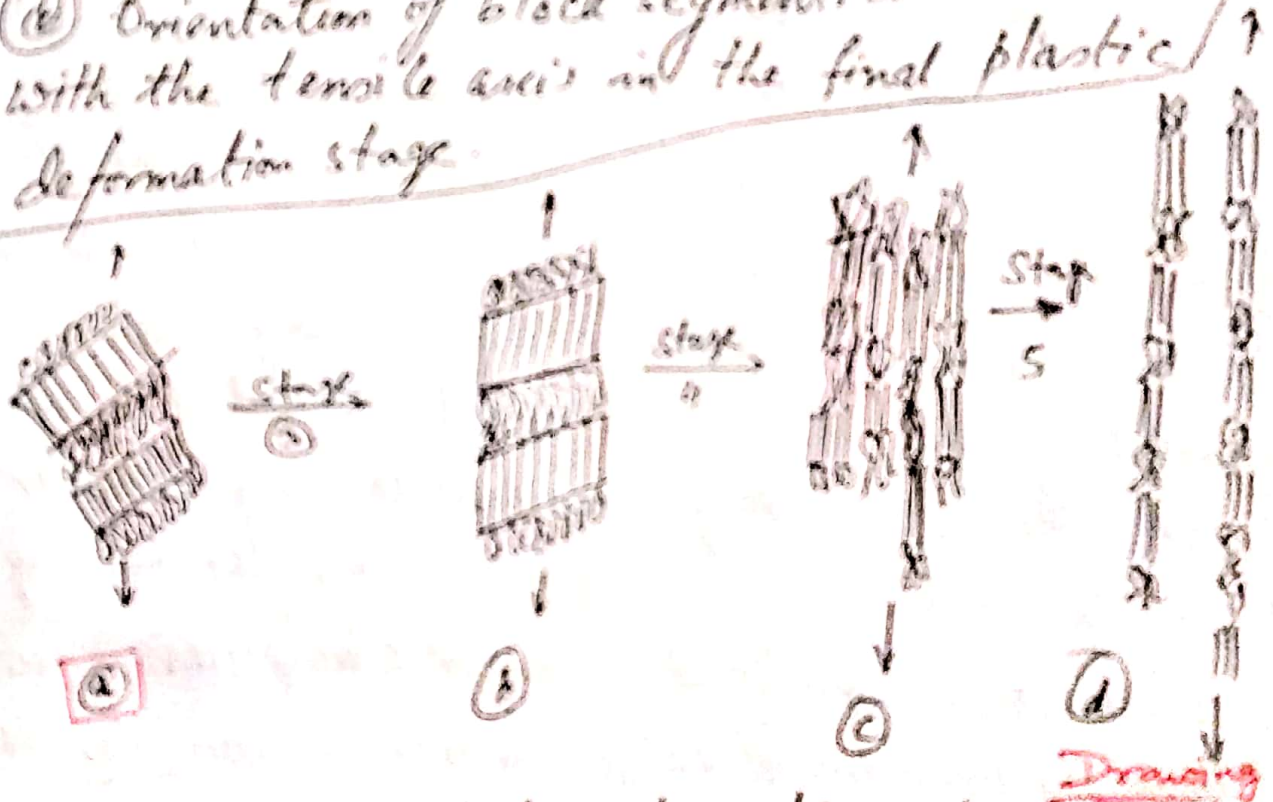 (d) Orientation of block segments
with the tensile axis in the final plastic
deformation stage.
stage
3
stage
4
Stage
5
a
b
c
d
Drawing